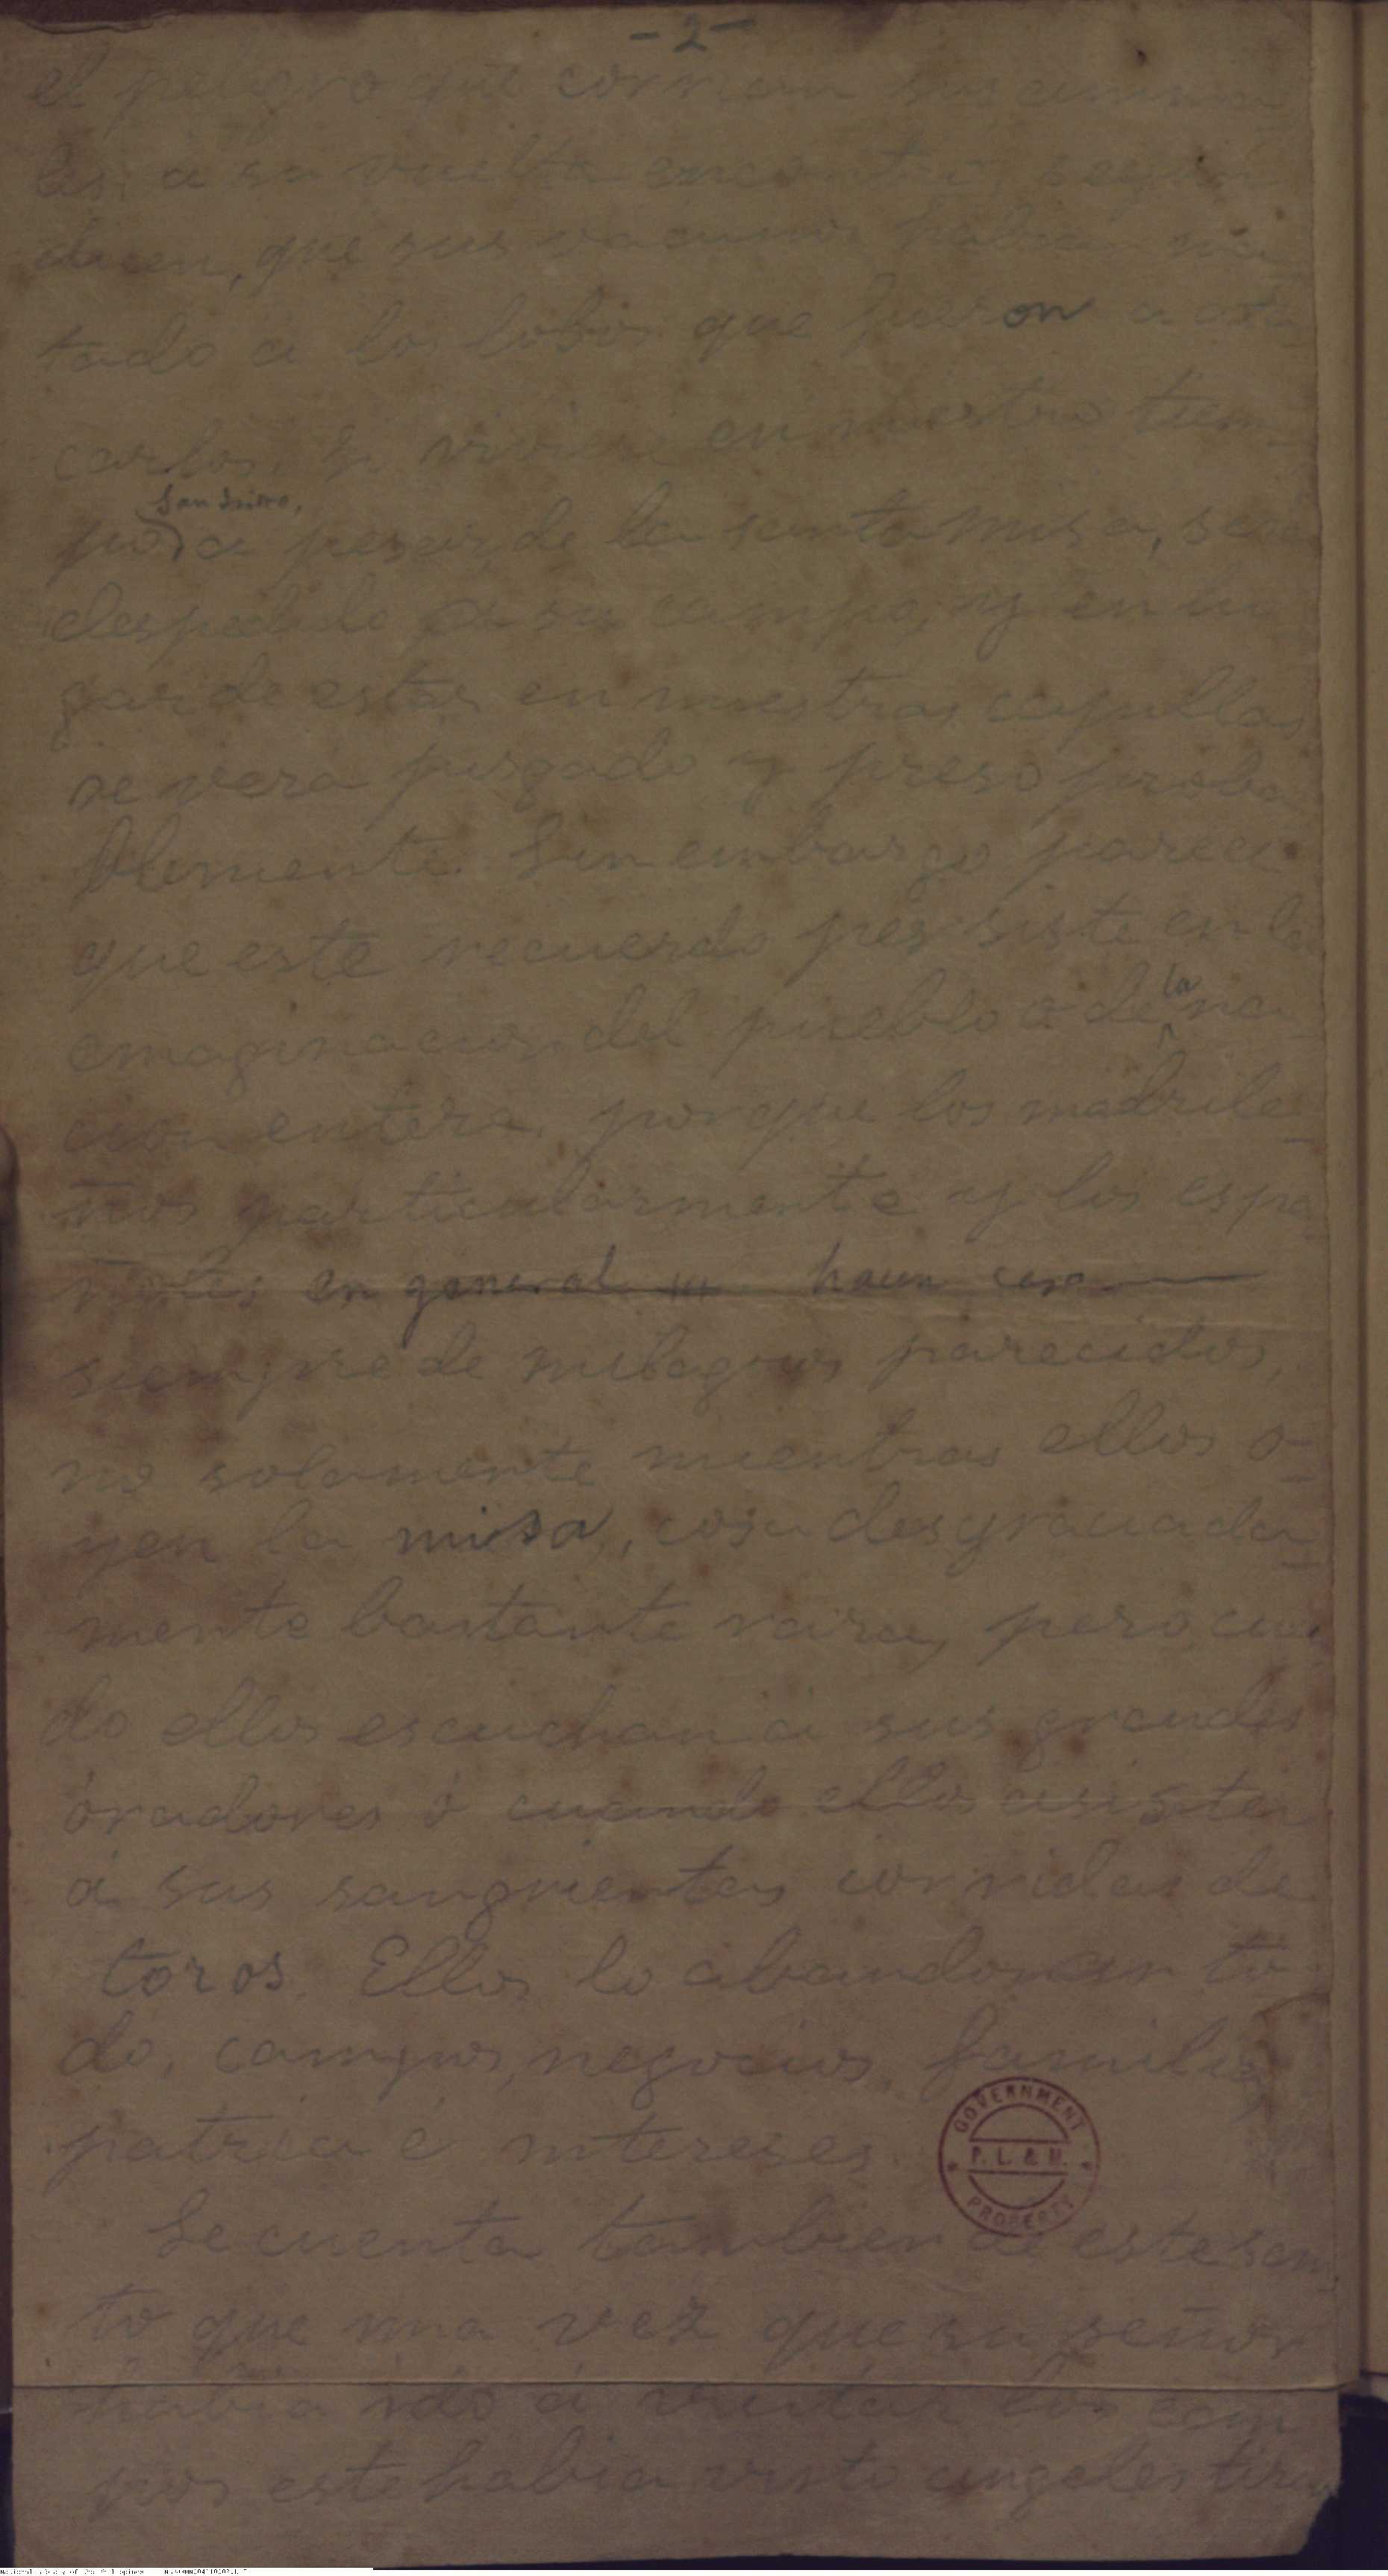 - 2 -
el peligro que corrian sus anima
les; a su vuelta encontró, según
dicen, que sus vacunos habian ma-
tado a los lobos que fueron a ata-
carlos. Si viviera en nuestro tiem-
San Isidro,
po, a pesar de la santa misa, será
despedido de su campo, y en lu
gar de estar en nuestras capillas
se verá juzgado y preso proba
blemente. Sin embargo parece
que este recuerdo persiste en la
emaginacion del pueblo o de la na-
cion entera, porque los madrile-
ños particularmente y los espa
ñoles en general hacen caso
siempre de milagros parecidos,
no solamente mientras ellos o-
yen la misa, cosa desgraciada-
mente bastante rara, pero cuan
do ellos escuchan á sus grandes
oradores ó cuando ellos asisten
á sus sangrientas corridas de
toros. Ellos lo abandonan to-
do, campos, negocios, familia,
patria é intereses.
GOVERNMENT
P. L. & M.
PROPERTY
Se cuenta tambien de este san
to que una vez que su señor
habia ido á visitar los cam
pos este habia visto angeles tiran